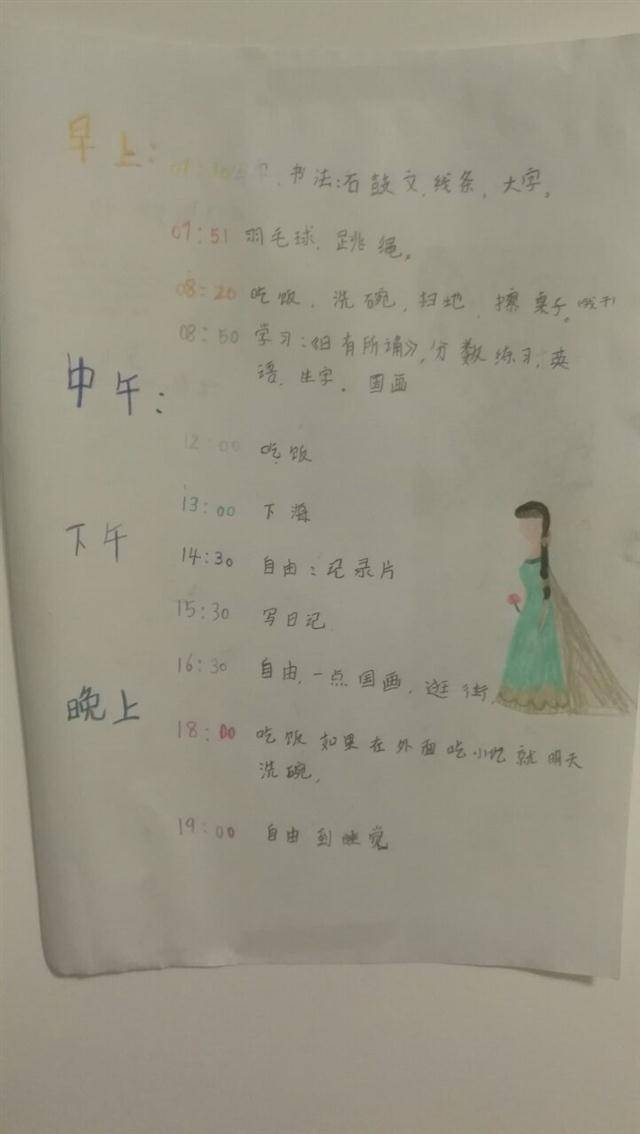 早上:
书法:石鼓文,线条,大字。
07:51 羽毛球,跳绳。
08:20 吃饭,洗碗,扫地,擦桌子。
08:50 学习:《日有所诵》,分数练习,英
语,生字。国画
中午:
12:00 吃饭
13:00 下海
下午
14:30 自由:记录片
15:30 写日记
16:30 自由,一点国画,逛街,
晚上
18:00 吃饭 如果在外面吃 就明天
洗碗,
19:00 自由到睡觉